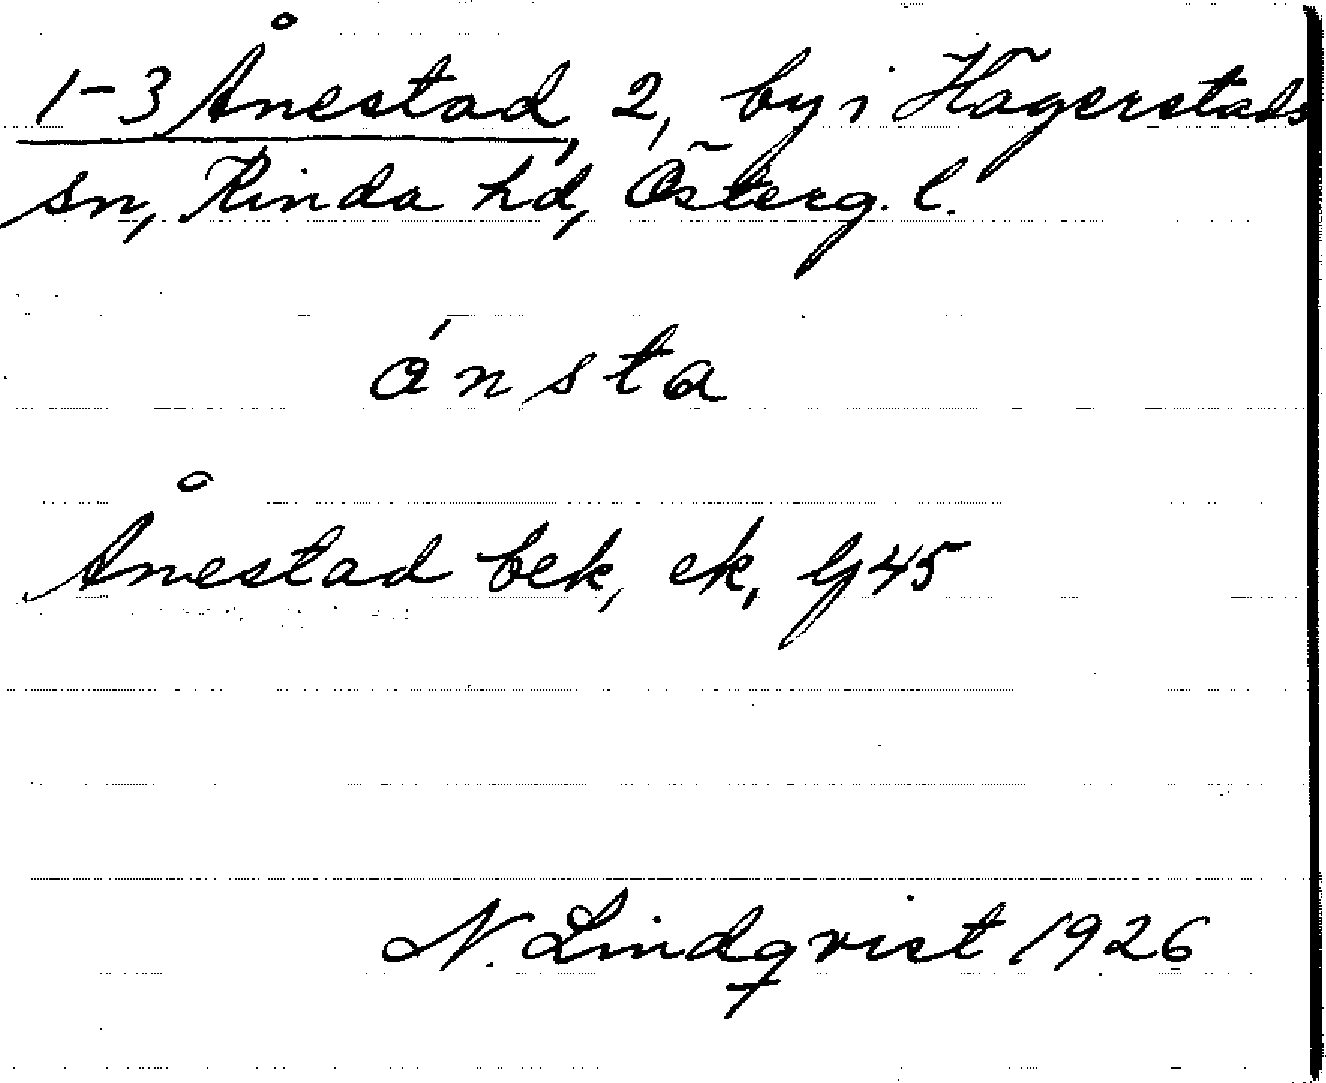 1-3 Ånestad, 2, by i Hägerstads
sn, Kinda hd, Österg. l.
ánsta
Ånestad bek, ek, Gj 45
N. Lindqvist 1926